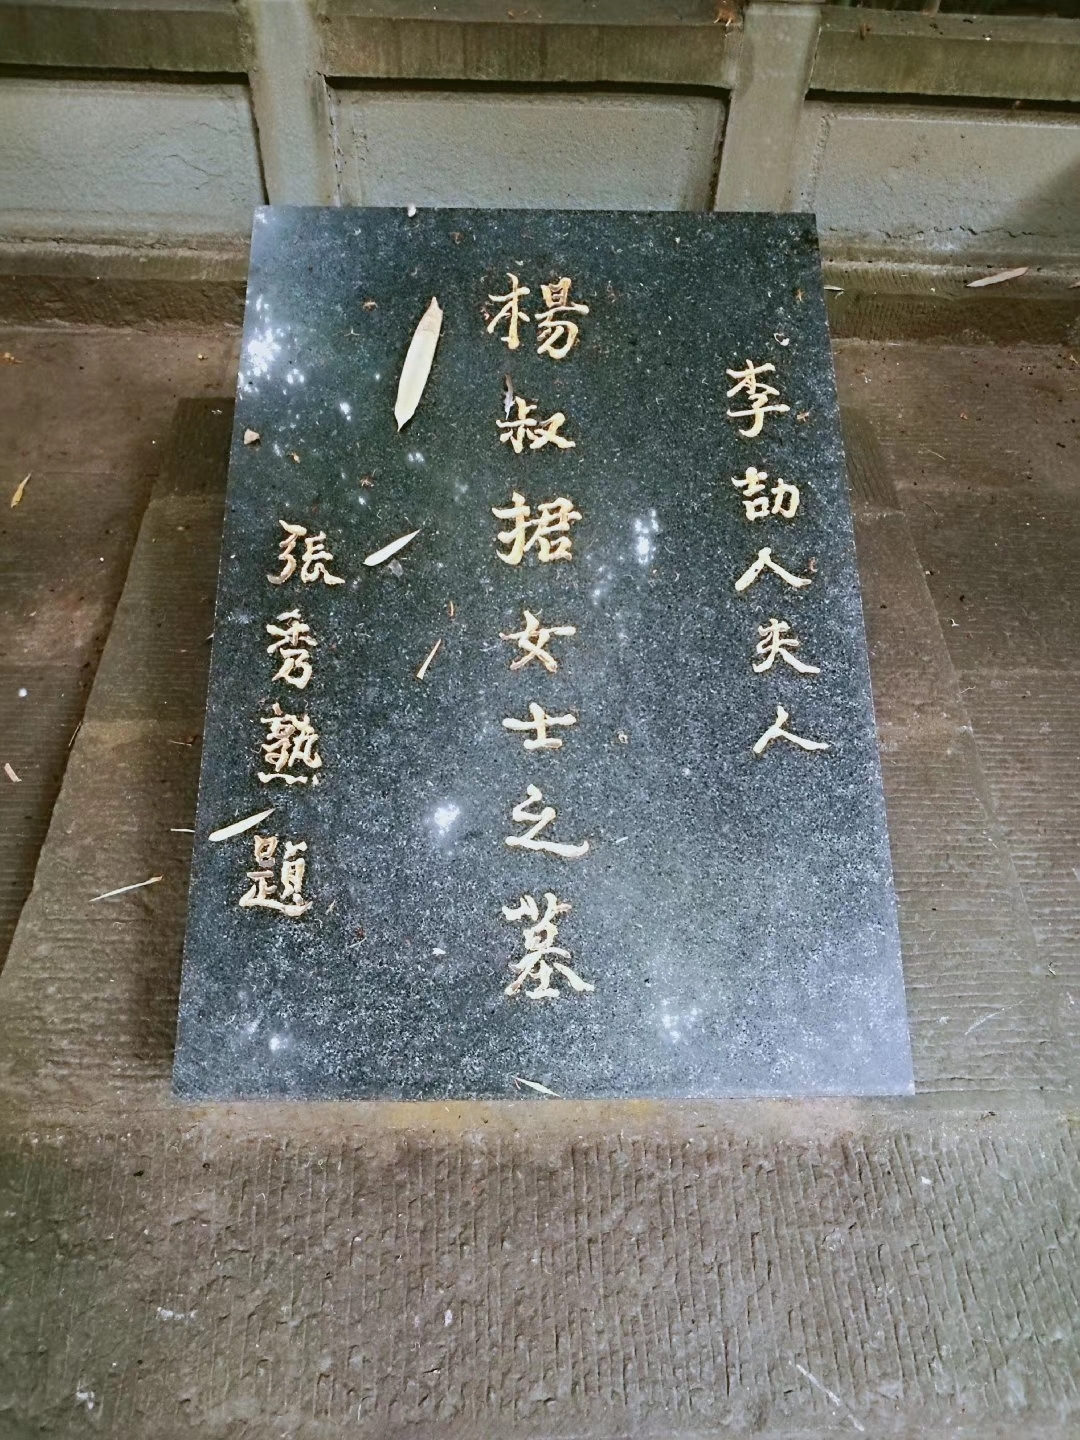 李劼人夫人
楊叔捃女士之墓
張秀熟題